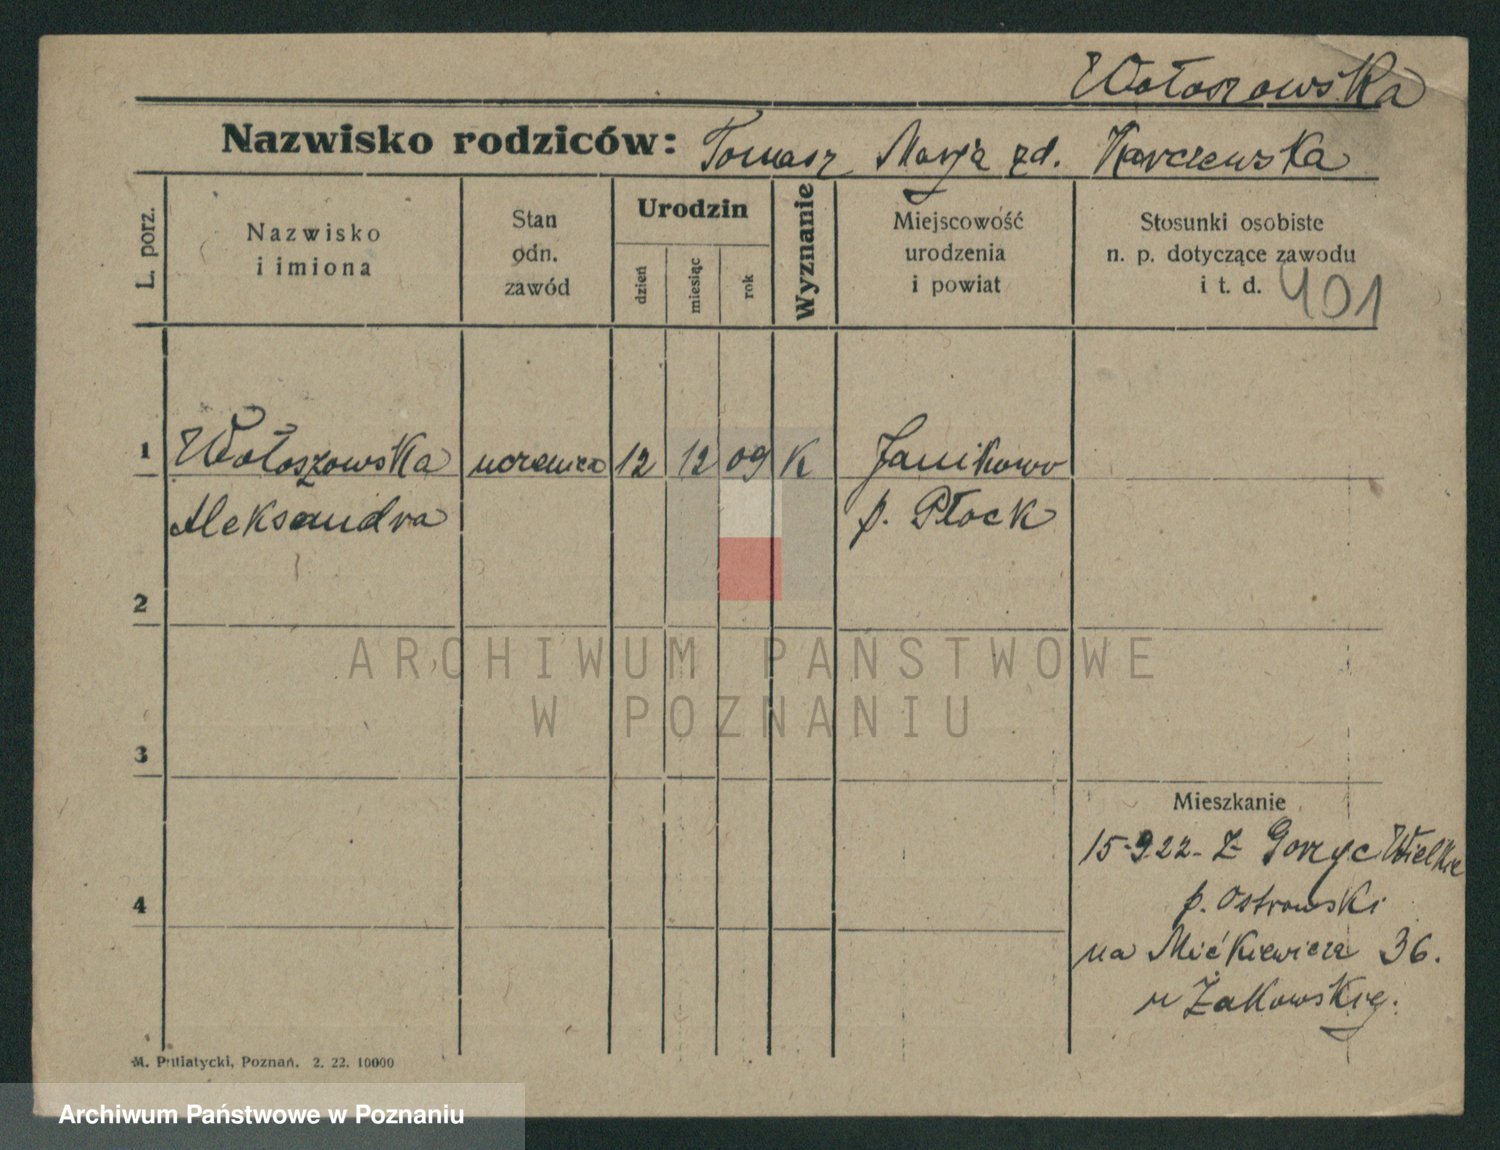 Wołoszowska
Nazwisko rodziców: Tomasz Marja zd. Karczewska
L. porz.
Nazwisko
i imiona
Stan
odn.
zawód
Urodzin
dzień
miesiąc
rok
Wyznanie
Miejscowość
urodzenia
i powiat
Stosunki osobiste
n. p. dotyczące zawodu
i t. d.
401
1 Wołoszowska uczenica 12 12 09 K Janikowo
Aleksandra p. Płock
2
ARCHIWUM PAŃSTWOWE
W POZNANIU
3
Mieszkanie
15-9.22- Z Gorzyc Wielkie
p. Ostrowski
4
na Mićkiewicza 36.
u Żakowskieg.
M. Putiatycki, Poznań. 2. 22. 10000
Archiwum Państwowe w Poznaniu